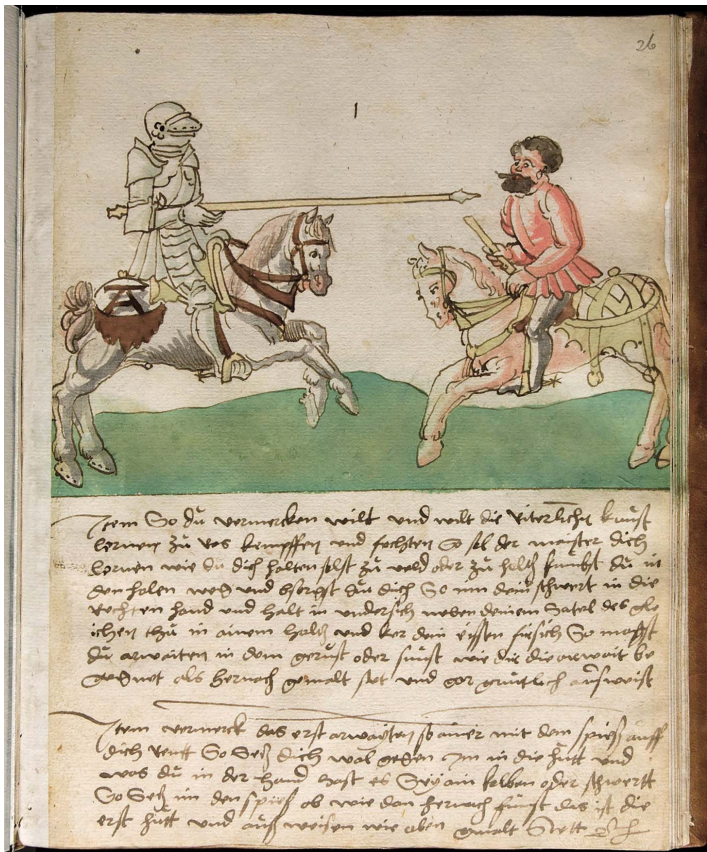 26
1
Item So du vermercken wilt und wilt die Riterlichen kunst
lernen zu Ros kempffen und fechten So sol der maister dich
lernen wie du dich halten solst zu veld oder zu holtz kumbst du in
den holen weg und besorgst du dich So nim dein schwert in die
rechten hand und halt in undersich neben deinem Satel des gle
ichen thu in ainem holtz und ker dein spissen fursich So magst
du arwaiten in dem gerust oder sunst wie dir die arwait be
gegnet als hernach gemalt stet und gar gruntlich ausweist
Item vermerck das erst arwayten so ainer mit dem spies auff
dich rent So Setz dich wol gegen Im in die hutt und
was du in der hand hast es Sey ain kolben oder schwertt
So Setz im den spies ab wie dan hernach kumpt das ist die
erst hutt und aus weisen wie oben gmalt Stett